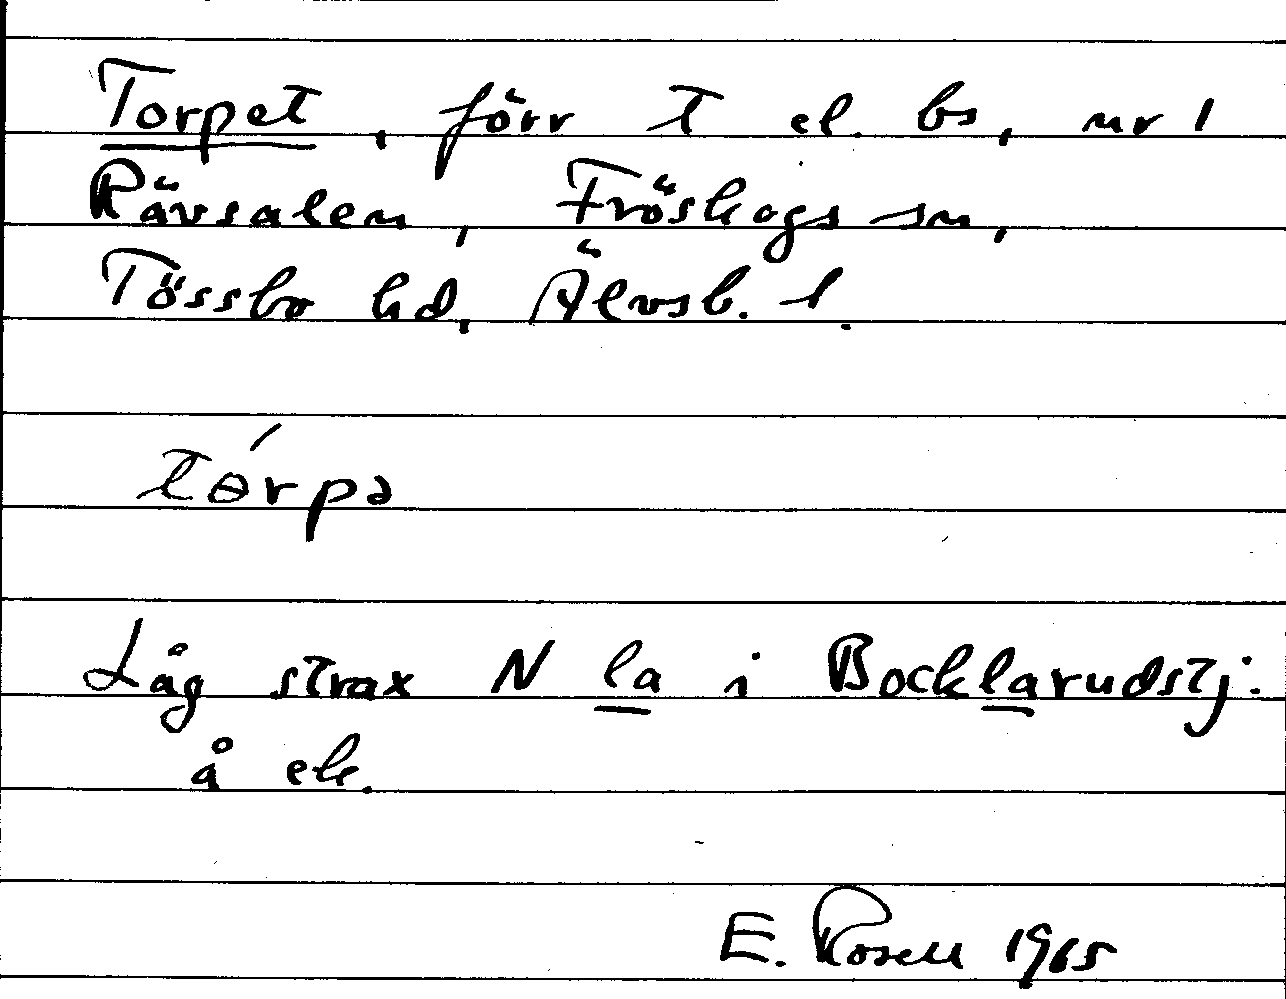 Torpet, förr t el. bs, nr 1
Rävsalen, Fröskogs sn,
Tössbo hd, Älvsb. l.
tɵ́rpə
Låg strax N la i Bocklarudstj.
å ek.
E. Rosell 1965